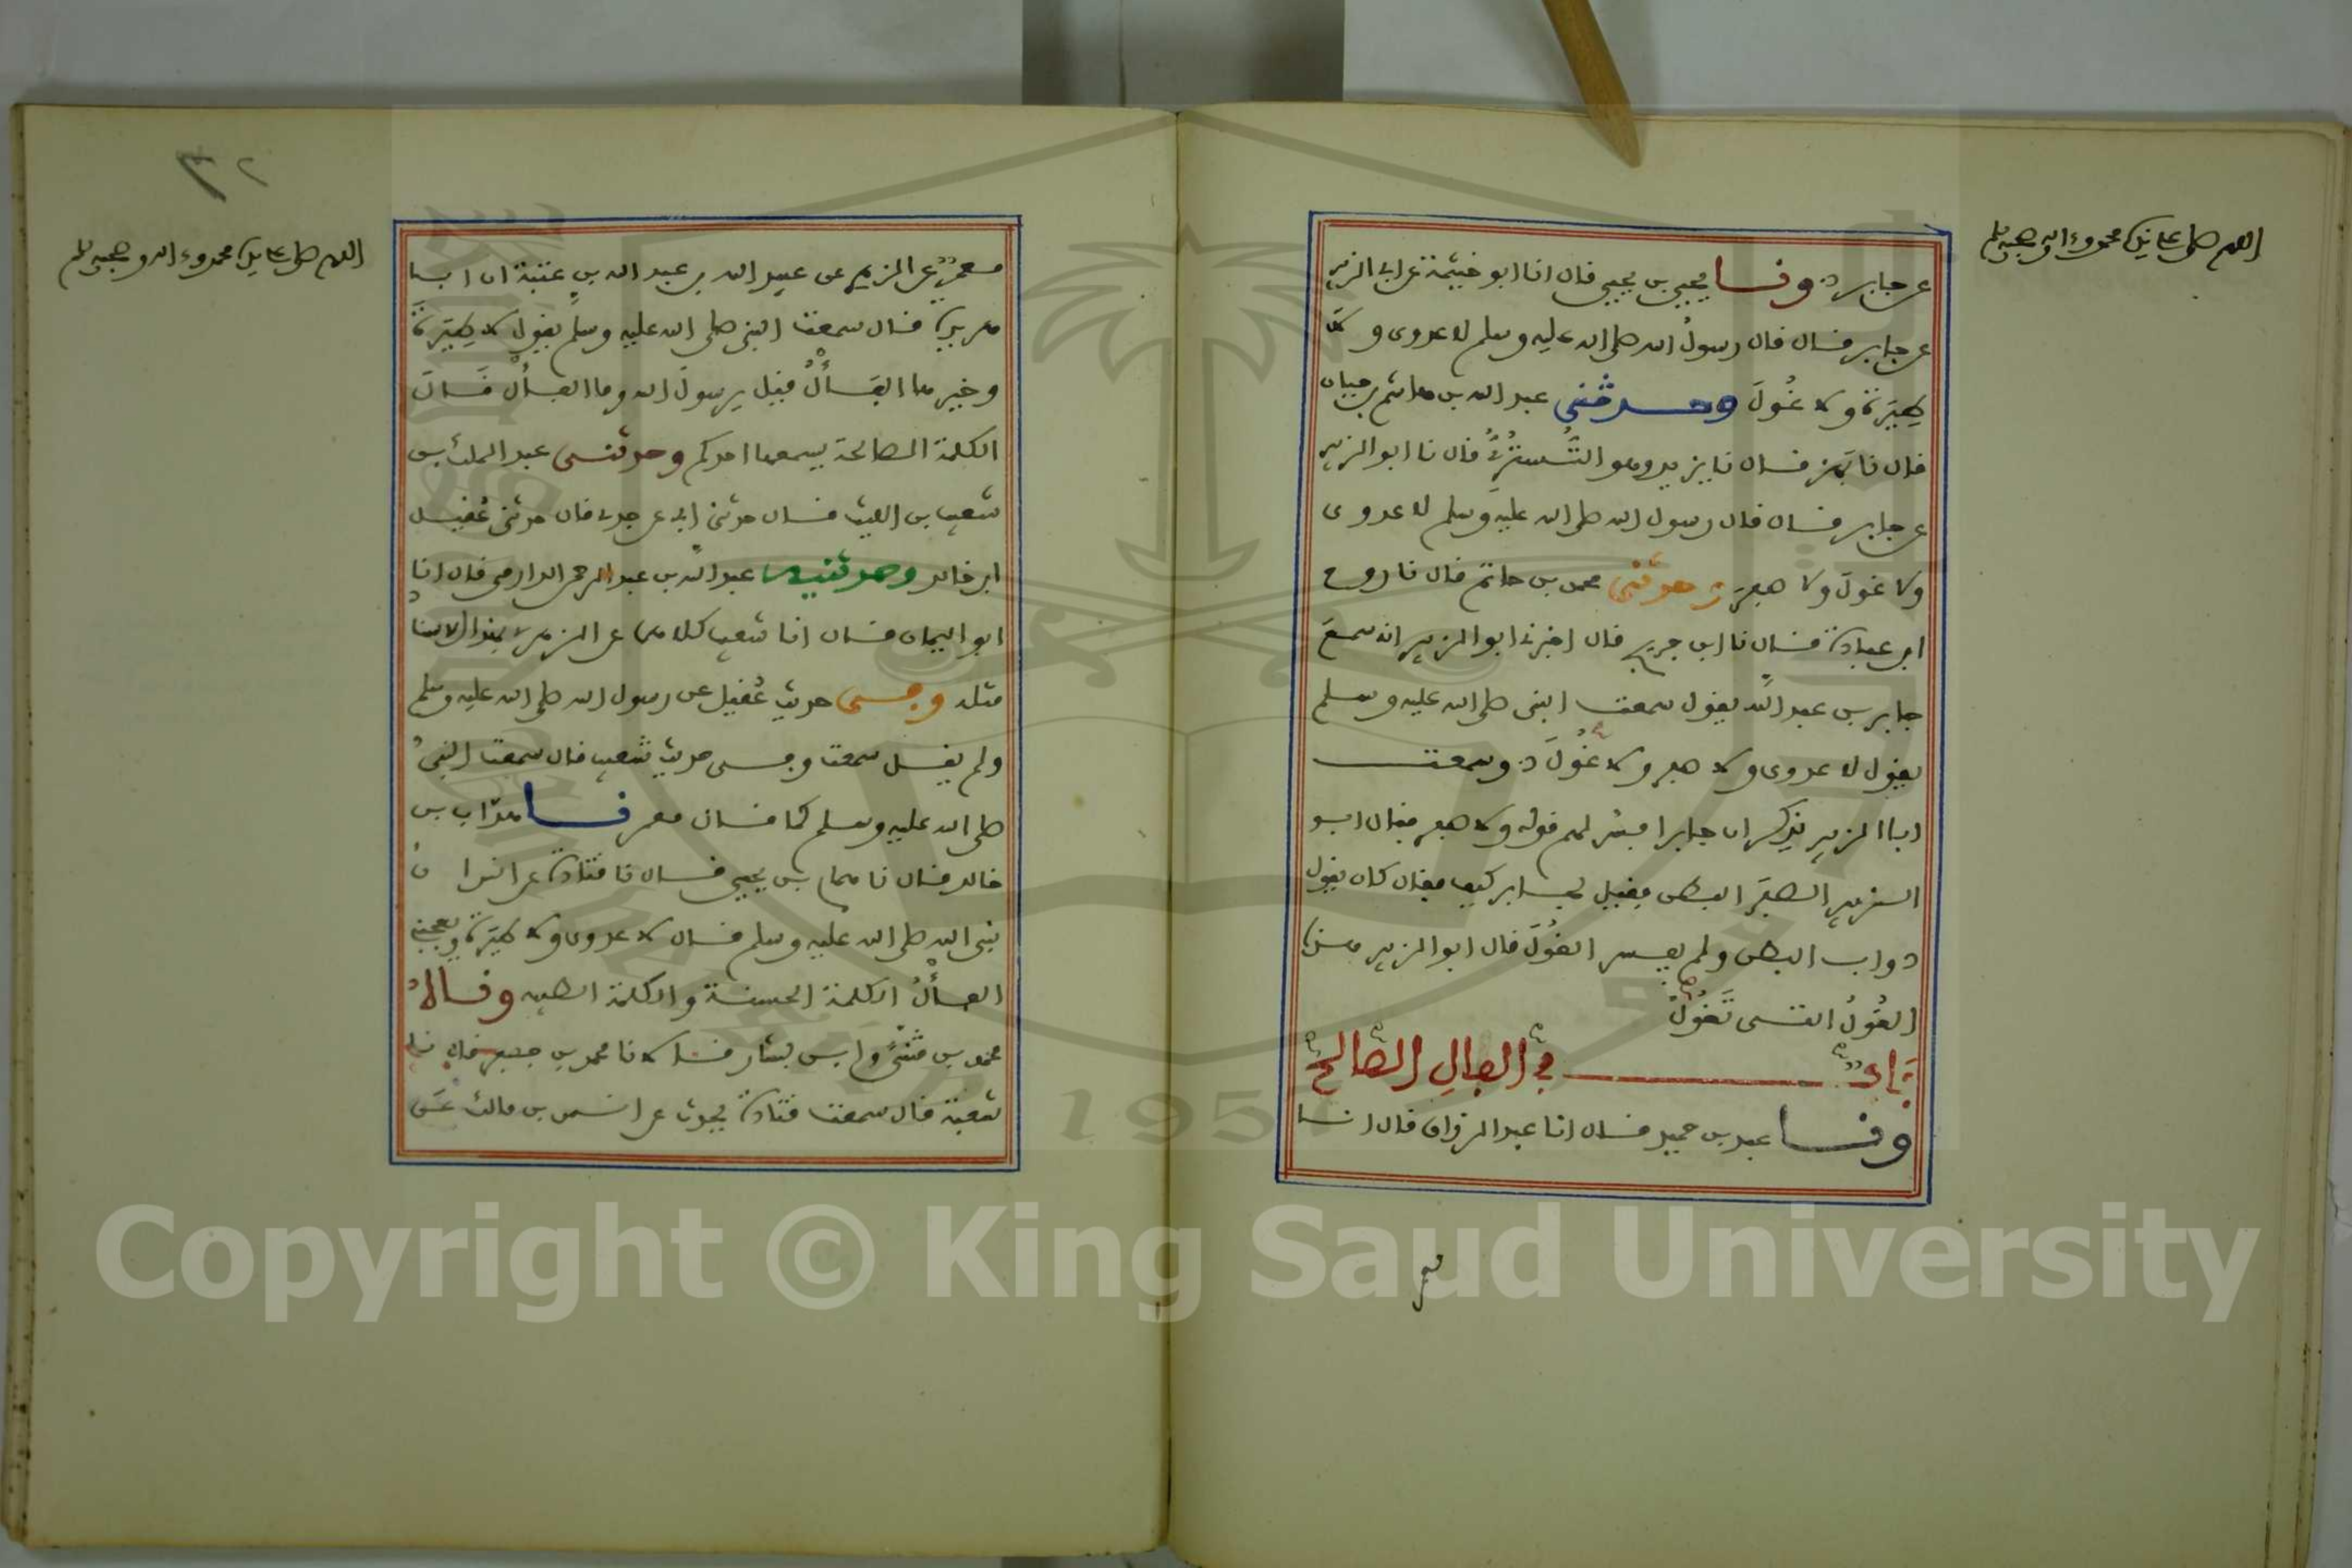 اللهم صل على سيدنا محمد وءاله وصحبه وسلم
عن جابر ح ونا يحيى بن يحيى قال انا ابو خيثمة عن ابي الزبير
عن جابر قال قال رسول الله صلى الله عليه وسلم لا عدوى ولا
طيرة ولا غول وحدثني عبد الله بن هاشم بن حيان
قال نا بهز قال نا يزيد وهو التستري قال نا ابو الزبير
عن جابر قال قال رسول الله صلى الله عليه وسلم لا عدوى
ولا غول ولا صفر وحدثني محمد بن حاتم قال نا روح
ابن عبادة قال نا ابن جريج قال اخبرني ابو الزبير انه سمع
جابر بن عبد الله يقول سمعت النبي صلى الله عليه وسلم
يقول لا عدوى ولا صفر ولا غول وسمعت
ابا الزبير يذكر ان جابرا فسر لهم قوله ولا صفر فقال ابو
الزبير الصفر البطن فقيل لجابر كيف فقال كان يقول
دواب البطن ولم يفسر الغول قال ابو الزبير هذه
الغول التي تغول
باب في الفال الصالح
ونا عبد بن حميد قال انا عبد الرزاق قال انا
٣٢
اللهم صل على سيدنا محمد وءاله وصحبه وسلم
معمر عن الزهري عن عبيد الله بن عبد الله بن عتبة ان ابا
هريرة قال سمعت النبي صلى الله عليه وسلم يقول لا طيرة
وخيرها الفأل قيل يرسول الله وما الفأل قال
الكلمة الصالحة يسمعها احدكم وحدثني عبد الملك بن
شعيب بن الليث قال حدثني ابي عن جدي قال حدثني عقيل
ابن خالد وحدثنيه عبد الله بن عبد الرحمن الدارمي قال انا
ابو اليمان قال انا شعيب كلاهما عن الزهري بهذا الاسناد
مثله وفي حديث عقيل عن رسول الله صلى الله عليه وسلم
ولم يقل سمعت وفي حديث شعيب قال سمعت النبي
صلى الله عليه وسلم كما قال معمر نا هداب بن
خالد قال نا همام بن يحيى قال نا قتادة عن انس ان
نبي الله صلى الله عليه وسلم قال لا عدوى ولا طيرة ويعجبني
الفأل الكلمة الحسنة والكلمة الطيبة وناه
محمد بن مثنى وابن بشار قالا نا محمد بن جعفر قال نا
شعبة قال سمعت قتادة يحدث عن انس بن مالك عن
Copyright © King Saud University
1957